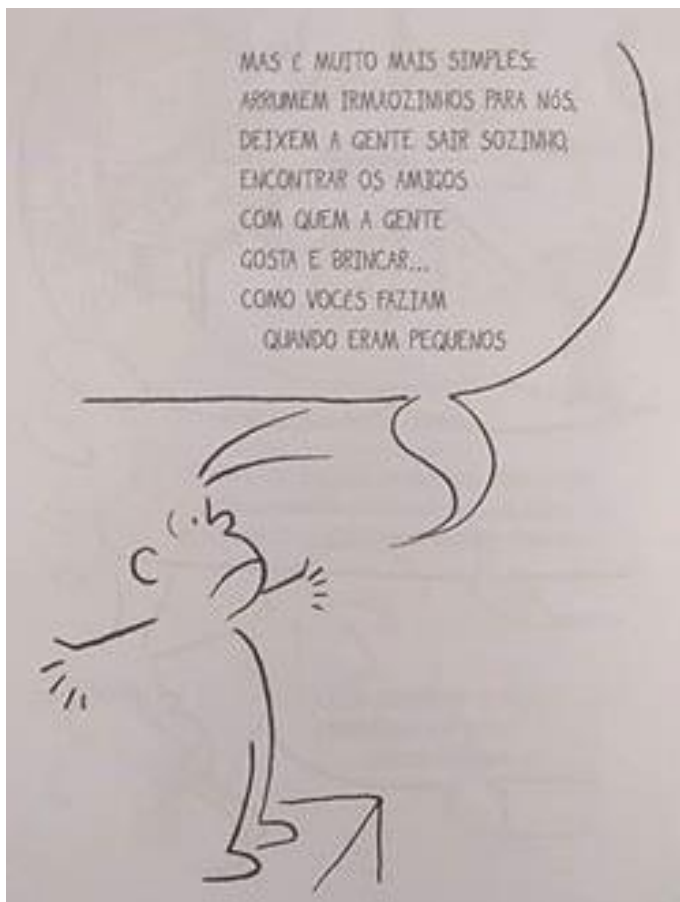 MAS É MUITO MAIS SIMPLES:
ARRUMEM IRMÃOZINHOS PARA NÓS,
DEIXEM A GENTE SAIR SOZINHO,
ENCONTRAR OS AMIGOS
COM QUEM A GENTE
GOSTA E BRINCAR...
COMO VOCÊS FAZIAM
QUANDO ERAM PEQUENOS